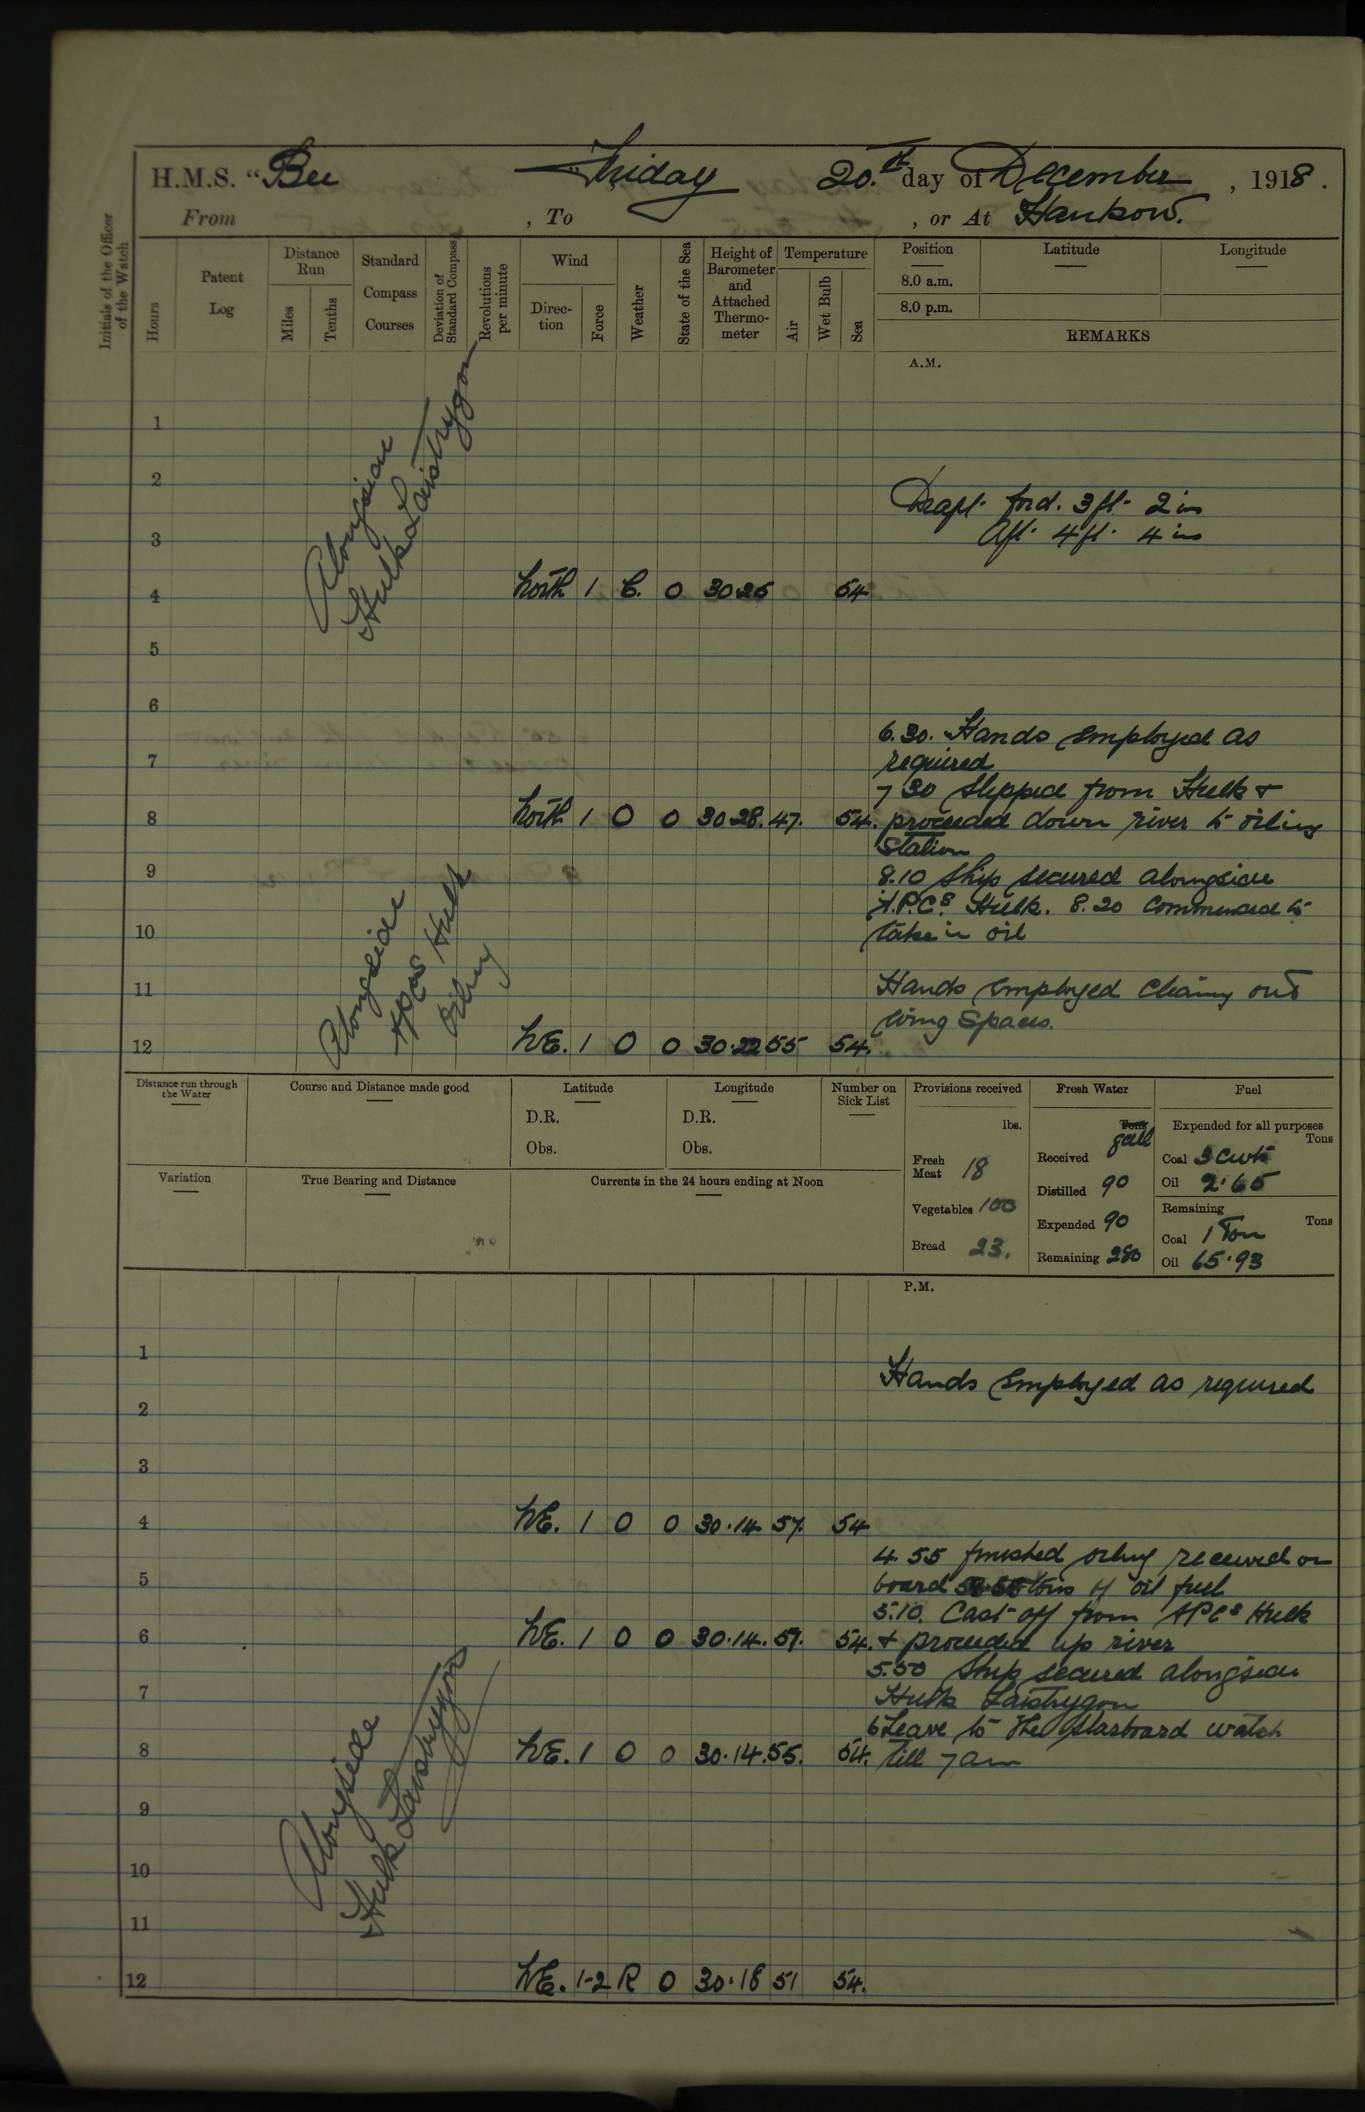 H.M.S. "Bee" Friday 20.th day of December, 1918.
From , To , or At Hankow.
Initials of the Officer of the Watch
Hours
Patent Log
Distance Run
Miles
Tenths
Standard Compass Courses
Deviation of Standard Compass
Revolutions per minute
Wind
Direction
Force
Weather
State of the Sea
Height of Barometer and Attached Thermometer
Temperature
Air
Wet Bulb
Sea
Position
Latitude
Longitude
8.0 a.m.
8.0 p.m.
REMARKS
A.M.
Alongside
Hulk Laistrygon
1
2
Draft. ford. 3ft. 2 ins
3
Aft. 4ft. 4 ins
4 North 1 C. 0 30 26 54.
5
6
6.30. Hands employed as
7
required
7 30 Slipped from Hulk &
8 North 1 O 0 30 28. 47. 54. proceeded down river to oiling
Station
9
8.10 Ship secured alongside
A.P.Cs. Hulk. 8.20 Commenced to
10
take in oil
Alongside
APCos Hulk
Oiling
11
Hands employed cleaning out
wing spaces.
12 NE. 1 O 0 30.22 55 54.
Distance run through the Water
Course and Distance made good
Latitude
D.R.
Obs.
Longitude
D.R.
Obs.
Number on Sick List
Variation
True Bearing and Distance
Currents in the 24 hours ending at Noon
Provisions received
lbs.
Fresh Meat 18
Vegetables 100
Bread 23.
Fresh Water
Tons gall
Received
Distilled 90
Expended 90
Remaining 280
Fuel
Expended for all purposes
Tons
Coal 3 cwts
Oil 2.65
Remaining
Tons
Coal 1 Ton
Oil 65.93
P.M.
1
Hands employed as required
2
3
4 NE. 1 O 0 30.14 57. 54
4.55 finished oiling received on
5
board tons of oil fuel
5.10. Cast off from APCs Hulk
6 NE. 1 O 0 30.14. 57. 54. & proceeded up river
5.50 Ship secured alongside
7
Hulk Laistrygon
6 Leave to the Starboard watch
8 NE. 1 O 0 30.14. 55. 54. till 7 am
Alongside
Hulk Laistrygon
9
10
11
12 NE. 1-2 R 0 30.18 51 54.